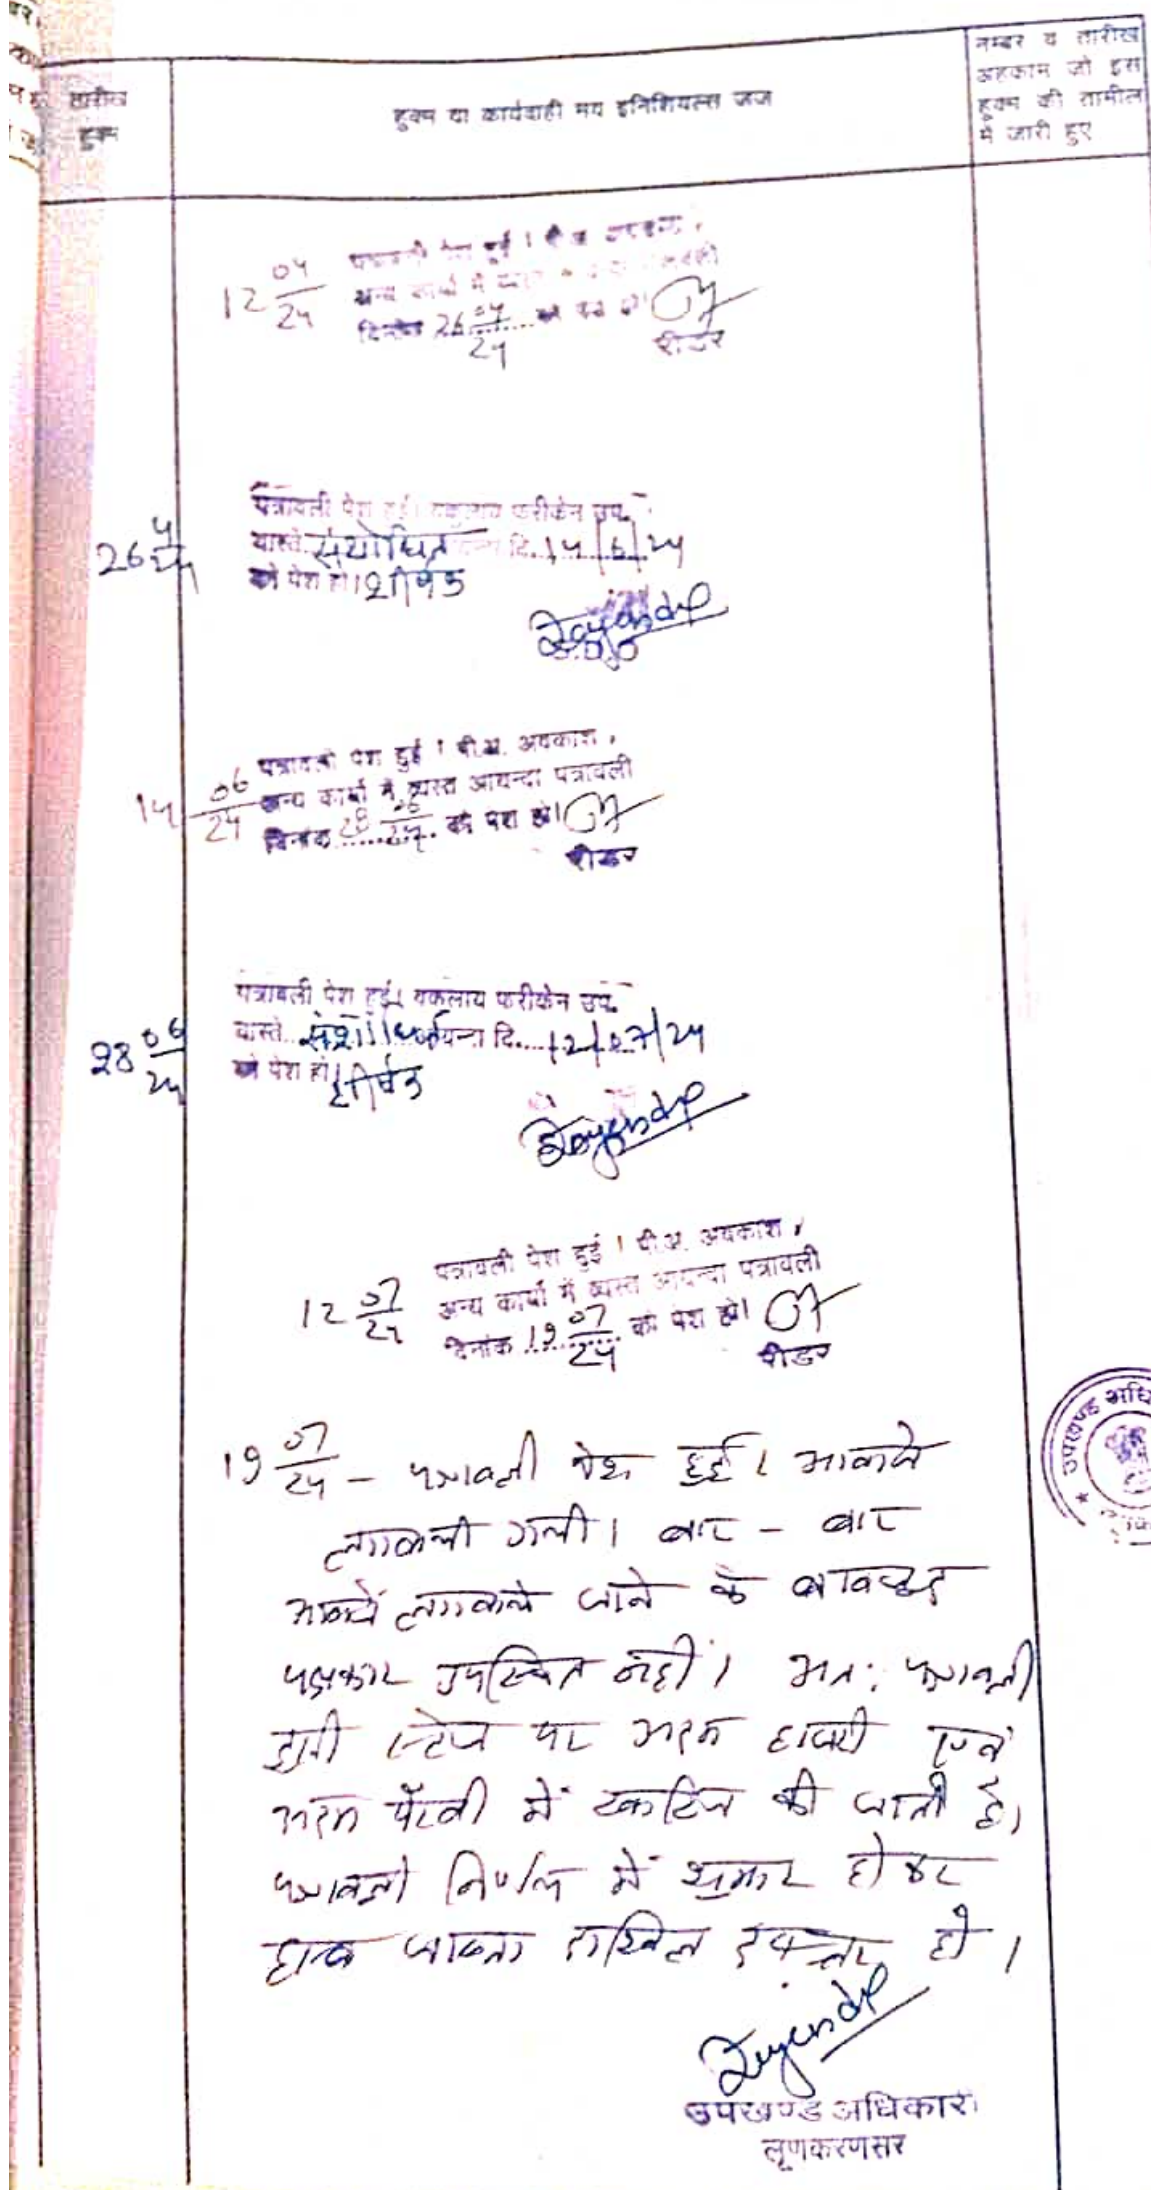 तारीख
हुक्म
हुक्म या कार्यवाही मय इनिशियल्स जज
नम्बर व तारीख
अहकाम जो इस
हुक्म की तामील
में जारी हुए
12 04/24
पत्रावली पेश हुई ।
अन्य कार्यो में
दिनांक 26 04/24 को पेश हो।
रीडर
26 4/24
पत्रावली पेश हुई। वकलाय फरीकेन उप.
वास्ते संशोधित दि. 14/6/24
को पेश हो। शीर्षक
14 06/24
पत्रावली पेश हुई । पी.अ. अवकाश,
अन्य कार्यो में व्यस्त आयन्दा पत्रावली
दिनांक 28 06/24 को पेश हो।
रीडर
28 06/24
पत्रावली पेश हुई। वकलाय फरीकेन उप.
वास्ते संशोधित आयन्दा दि. 12/07/24
को पेश हो। शीर्षक
12 07/24
पत्रावली पेश हुई । पी.अ. अवकाश,
अन्य कार्यो में व्यस्त आयन्दा पत्रावली
दिनांक 19 07/24 को पेश हो।
रीडर
19 07/24 - पत्रावली पेश हुई। आवाजे
लगवायी गयी। बार - बार
आवाजें लगवाये जाने के बावजूद
पक्षकार उपस्थित नहीं। अतः पत्रावली
इसी स्टेज पर अदम हाजरी एवं
अदम पैरवी में खारिज की जाती है।
पत्रावली निर्णय में शुमार होकर
जाब्ता दाखिल दफ्तर हो।
उपखण्ड अधिकारी
लूणकरणसर
उपखण्ड